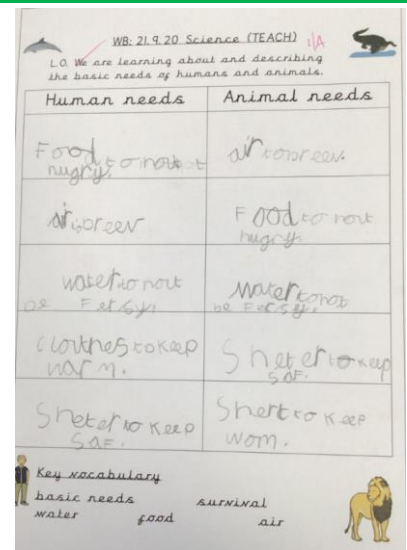 WB: 21.9.20 Science (TEACH) I/A
L.O. We are learning about and describing
the basic needs of humans and animals.
Human needs
Animal needs
Food to
hugry.
air to breev.
air
Food to nout
hugry.
water to nout
be Fersy.
water to not
be Fersy.
Clouthes to keep
warm.
Sheter to keep
saf.
Sheter to keep
saf.
Shert to keep
wom.
Key vocabulary
basic needs
survival
water
food
air